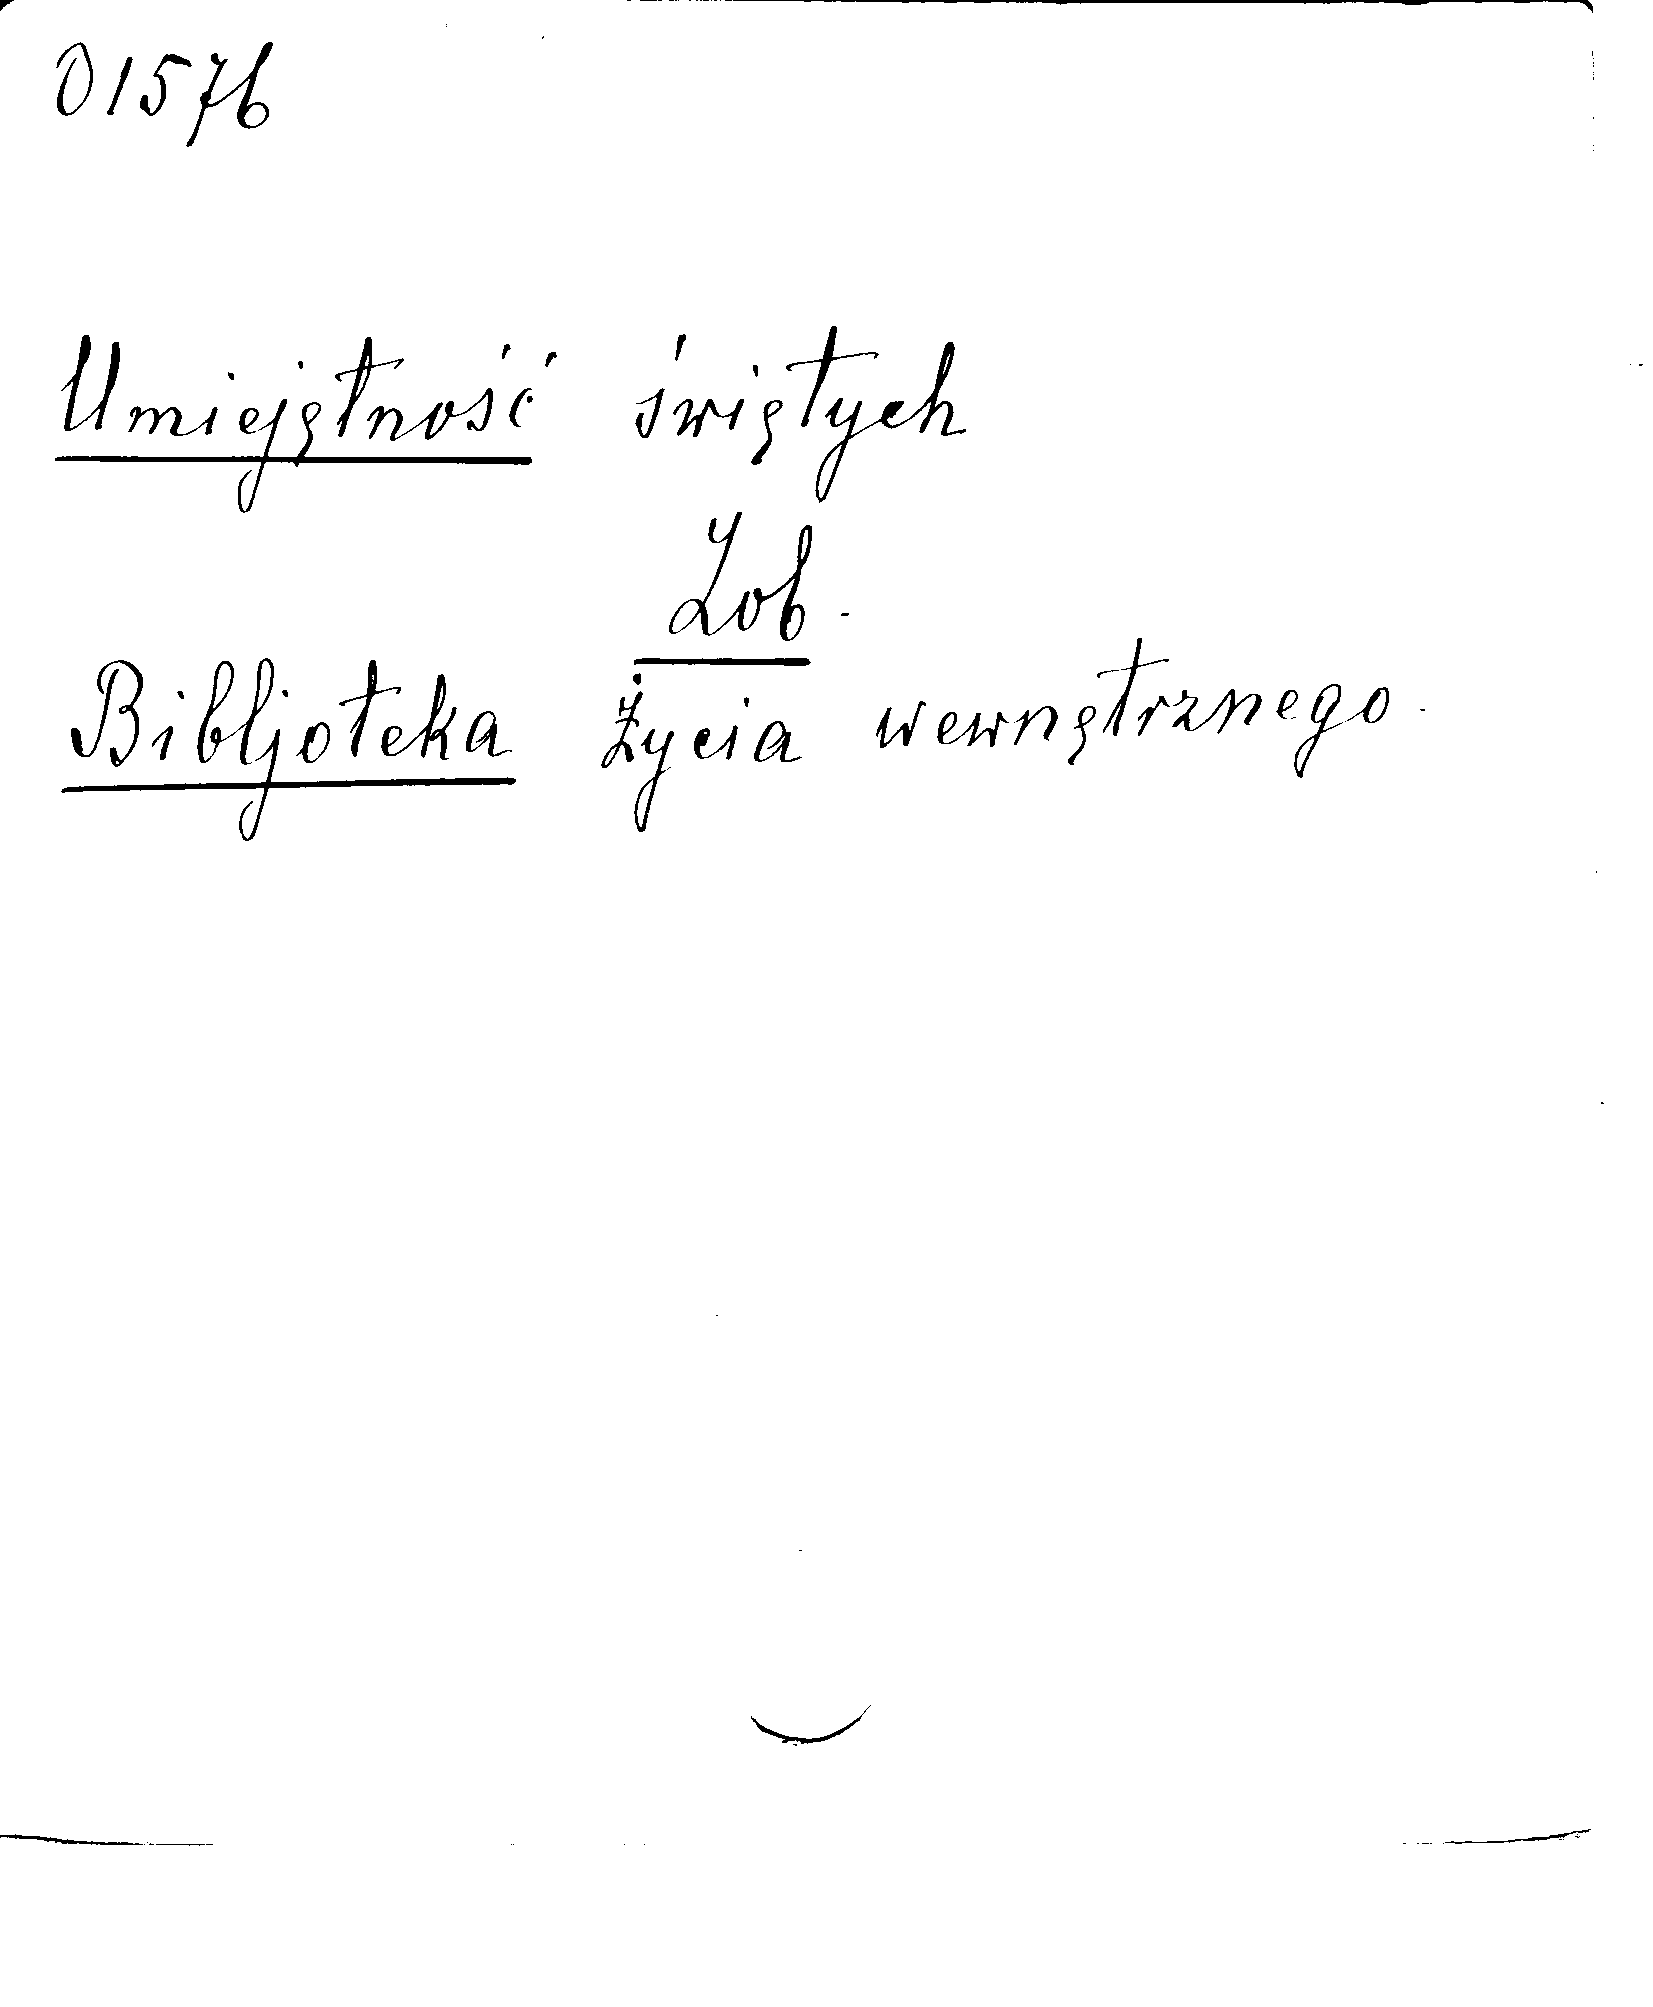 01576
Umiejętność świętych
Zob.
Bibljoteka życia wewnętrznego.